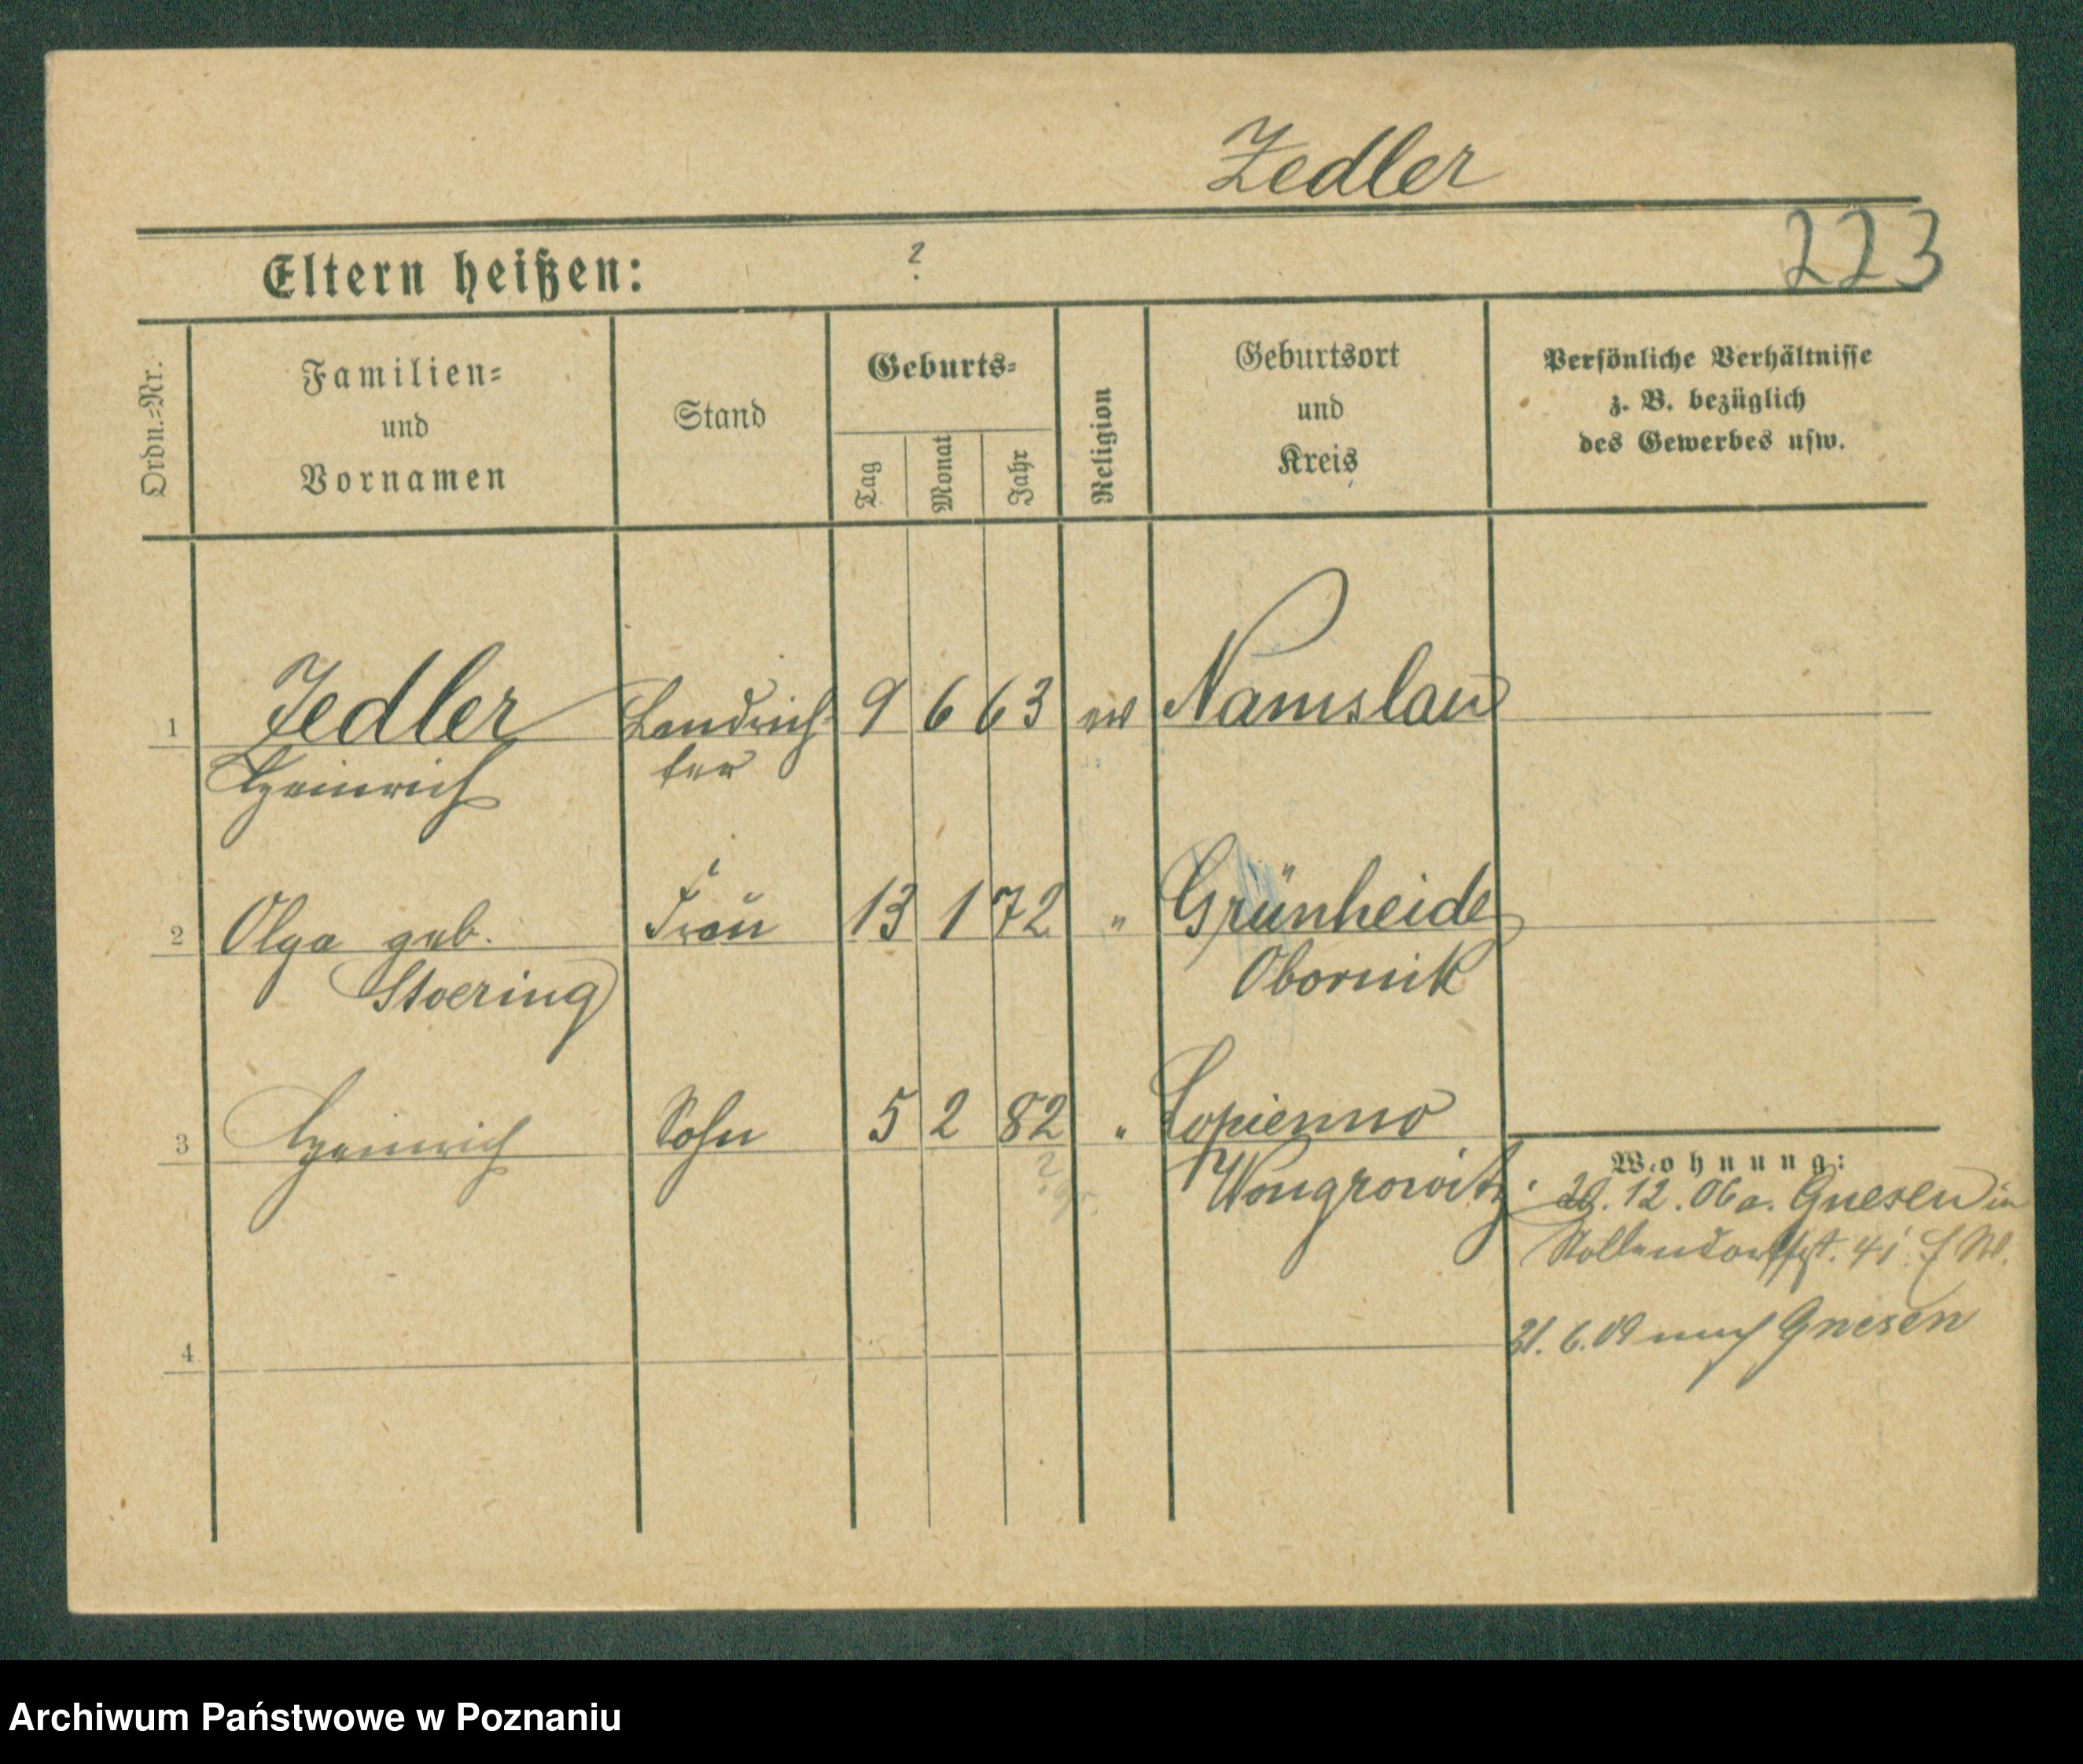 Zedler
223
Eltern heißen: ?
Ordn.=Nr.
Familien=
und
Vornamen
Stand
Geburts=
Tag
Monat
Jahr
Religion
Geburtsort
und
Kreis
Persönliche Verhältnisse
z. B. bezüglich
des Gewerbes usw.
1 Zedler Landrich- 9 6 63 ev Namslau
Heinrich ter
2 Olga geb. Frau 13 1 72 " Grünheide
Stoering Obornik
3 Heinrich Sohn 5 2 82 " Lopienno
? Wongrowitz
Wohnung:
20. 12. 06 a. Gnesen in
Nollendorffst. 41
4
21. 6. 09 nach Gnesen
Archiwum Państwowe w Poznaniu